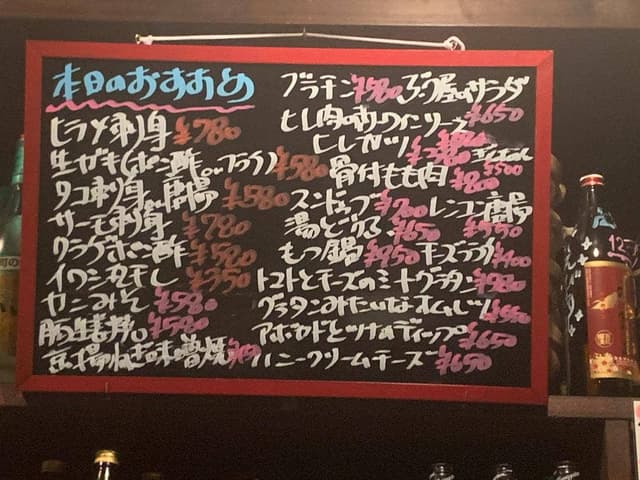 本日のおすすめ
ヒラメ刺し身 ¥780
生ガキ ポン酢 or フライ ¥580
タコ刺し身 or 唐揚 ¥580
サーモン刺し身 ¥780
クラゲポン酢 ¥580
イワシ丸干し ¥350
カニみそ ¥580
¥580
京揚ねぎ味噌焼
プラチン ¥580 ぶつ屋のサラダ
ヒレ肉の赤ワインソース ¥650
ヒレカツ
骨付もも肉 ¥800 ¥500
スンドゥブ ¥700 レンコン唐揚
湯どうふ ¥650 ¥550
もつ鍋 ¥950 チーズフライ ¥400
トマトとチーズのミートグラタン ¥980
グラタンみたいなオムレツ ¥550
アボカドとツナのディップ ¥650
ハニークリームチーズ ¥650